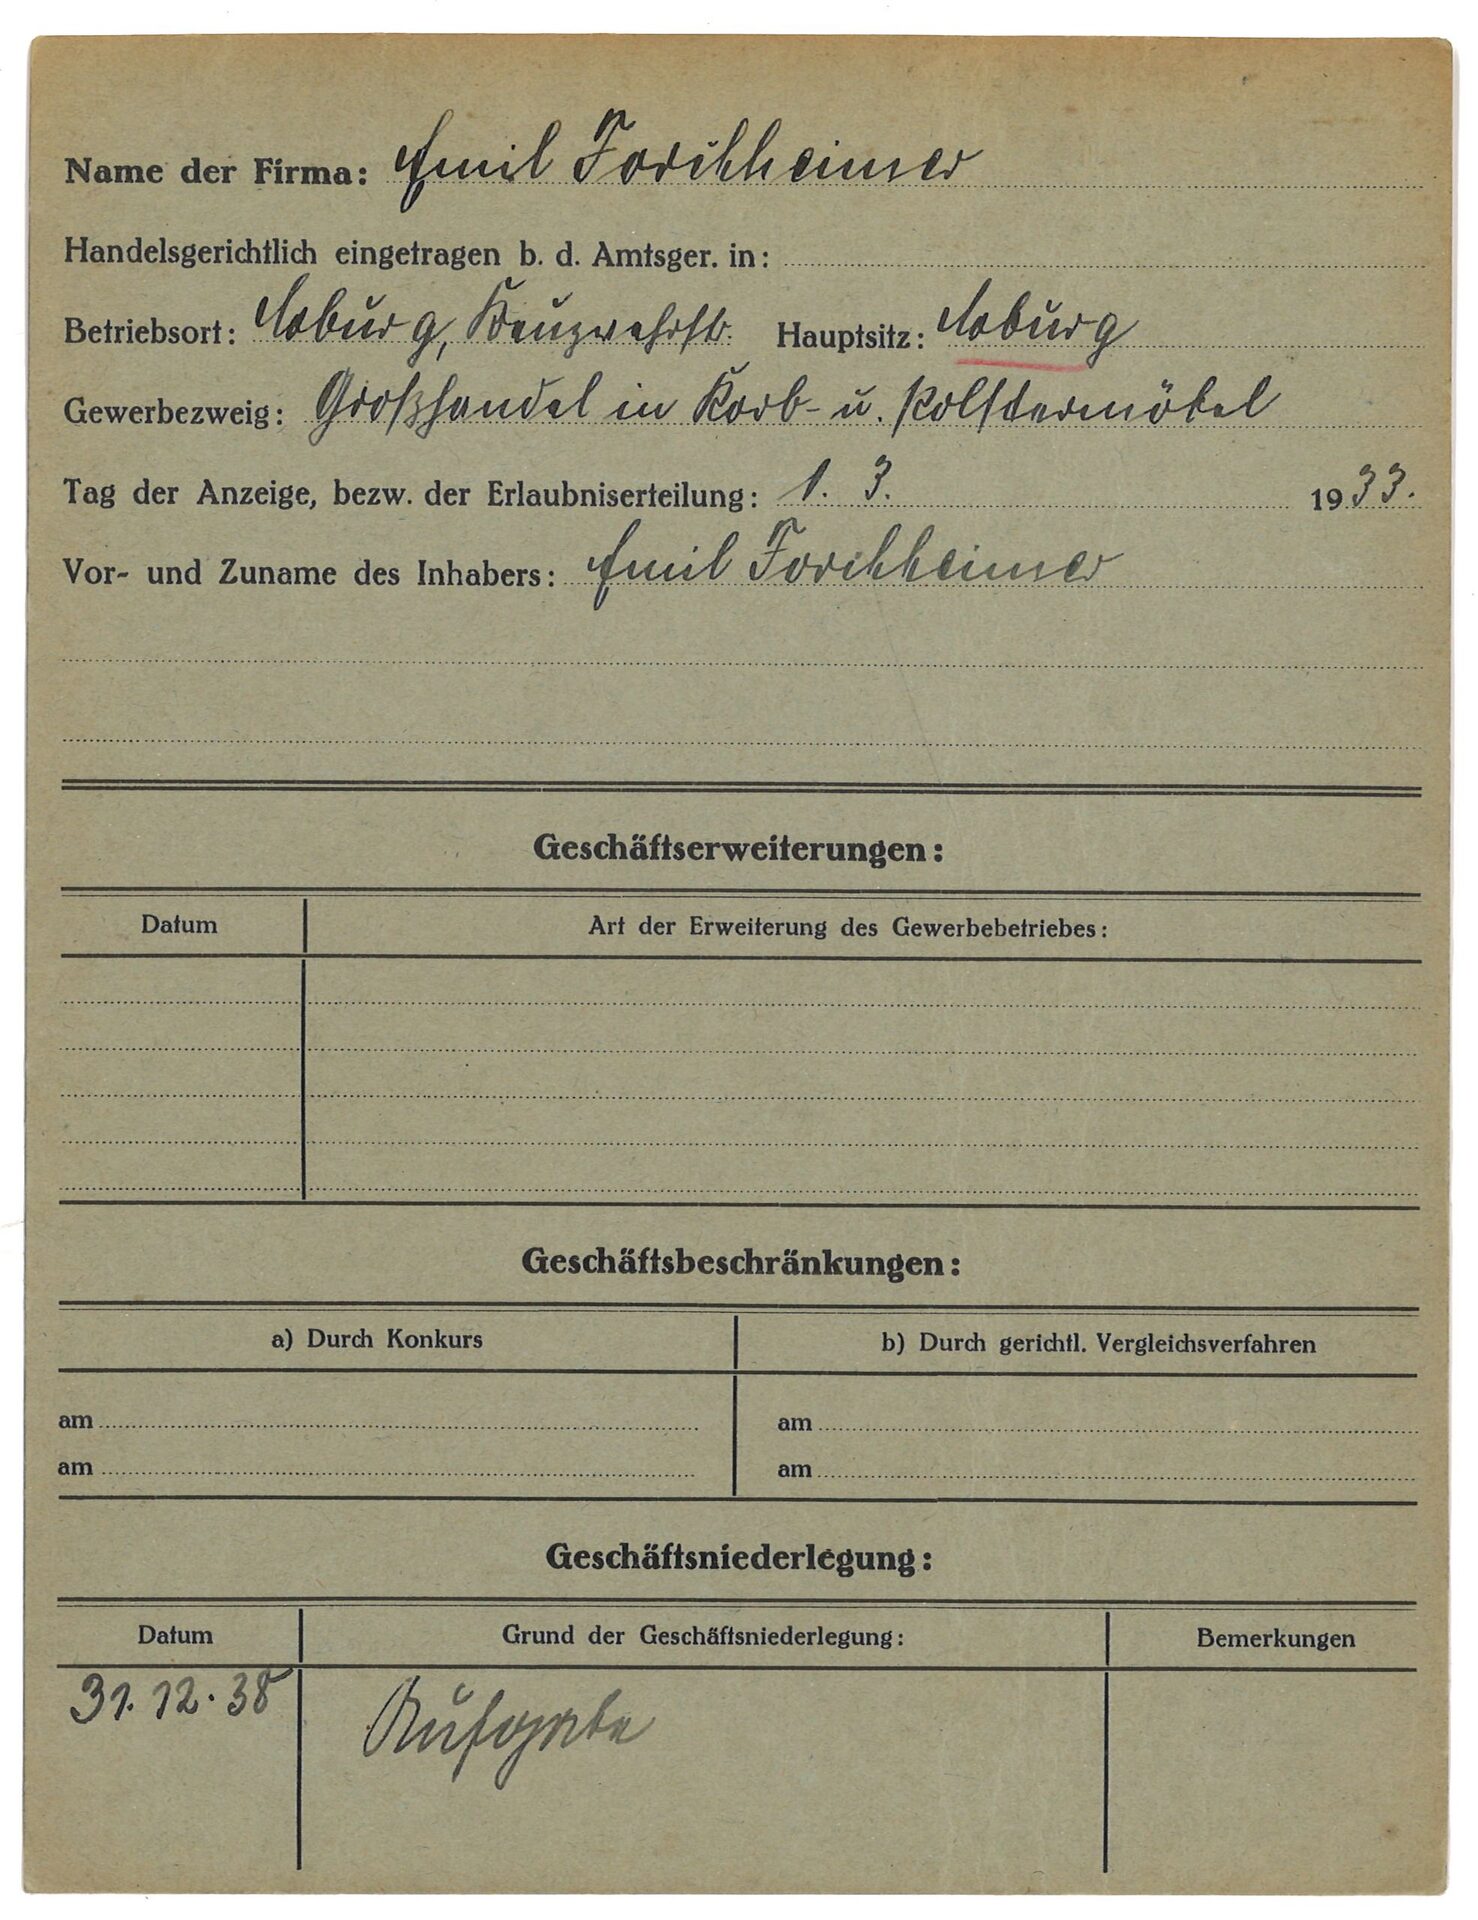 Name der Firma: Emil Forchheimer
Handelsgerichtlich eingetragen b. d. Amtsger. in:
Betriebsort: Coburg, Kreuzwehrstr. Hauptsitz: Coburg
Gewerbezweig: Großhandel in Korb- u. Polstermöbel
Tag der Anzeige, bezw. der Erlaubniserteilung: 1. 3. 1933.
Vor- und Zuname des Inhabers: Emil Forchheimer
Geschäftserweiterungen:
Datum Art der Erweiterung des Gewerbebetriebes:
Geschäftsbeschränkungen:
a) Durch Konkurs b) Durch gerichtl. Vergleichsverfahren
am am
am am
Geschäftsniederlegung:
Datum Grund der Geschäftsniederlegung: Bemerkungen
31. 12. 38 Aufgabe